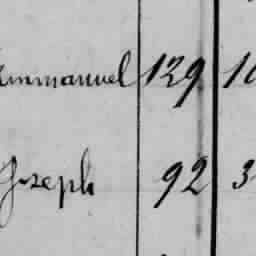 Emmanuel 129 10
Joseph 92 3